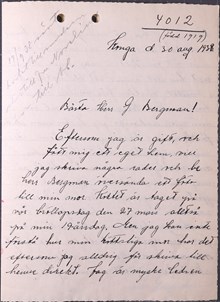 4012
(född 1919)
Konga d. 30 aug. 1938
Bästa Herr G Bergman!
Eftersom jag är gift, och
fått mig ett eget hem, ber
jag skriva några rader och be
herr Bergman översända ett foto
till min mor. Kortet är taget på
vår bröllopsdag den 27 maj alltså
på min 19årsdag. Men jag kan inte
förstå hur min mor har det
eftersom jag alldrig får skriva till
henne direkt. Jag är mycke ledsen